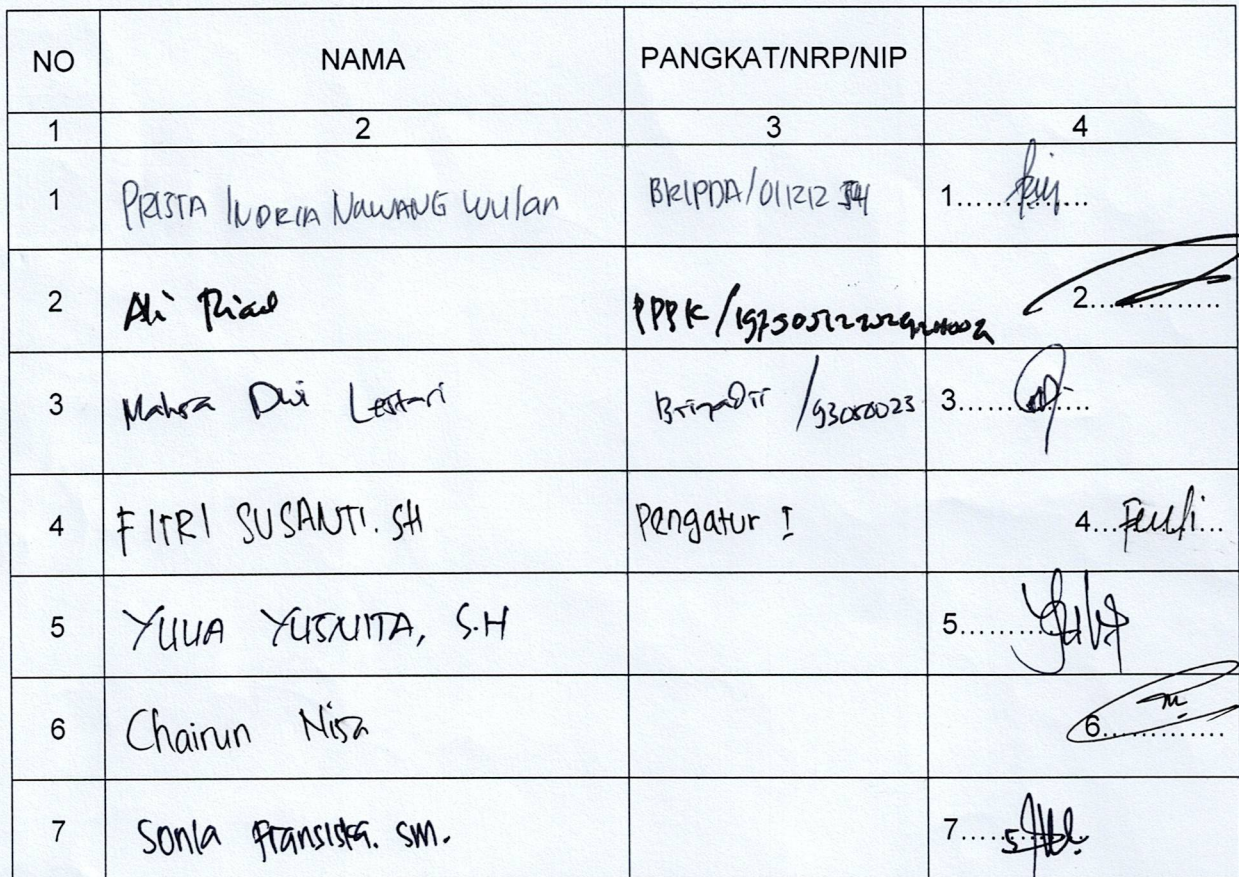 NO NAMA PANGKAT/NRP/NIP
1 2 3 4
1 PRISTA INDRIA NAWANG WULAN BRIPDA/011212 1.
2 Ali PPPK / 2.
3 Dwi Lestari 3.
4 FITRI SUSANTI. SH Pengatur I 4.
5 YULIA YUSNITA, S.H 5.
6 Chairun Nisa 6.
7 Sonia Fransiska. SM. 7.